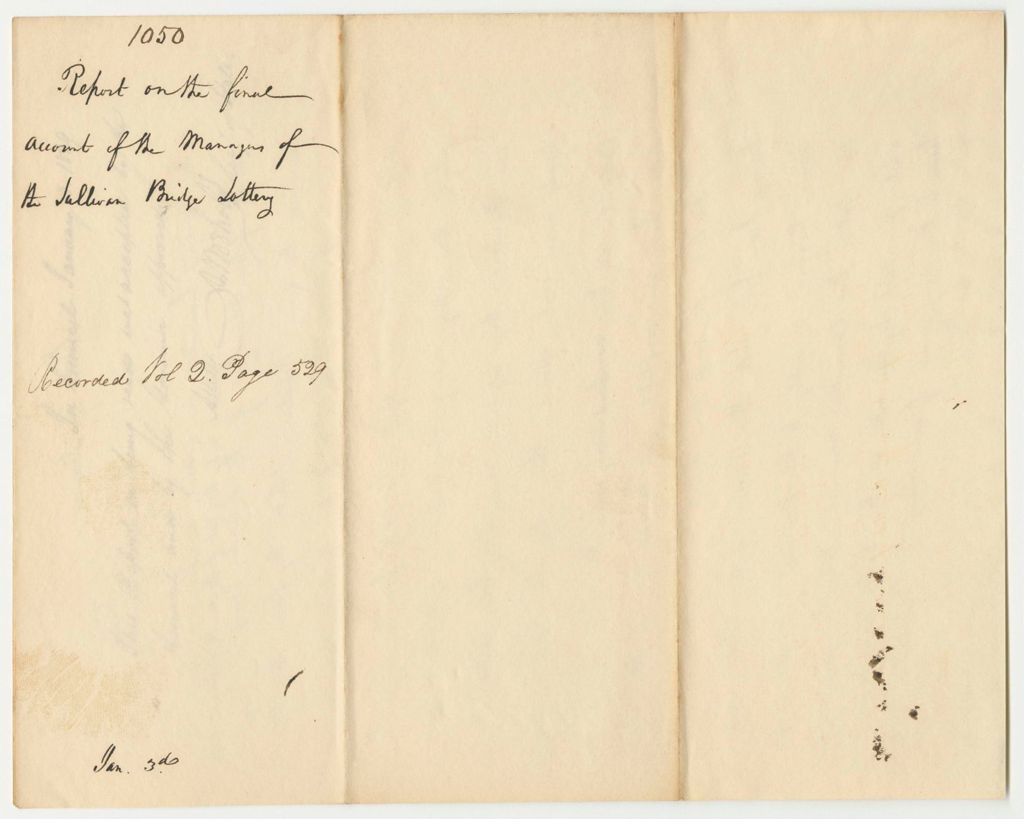 1050
Report on the final
account of the Managers of
the Sullivan Bridge Lottery
Recorded Vol 2. Page 529
Jan. 3d